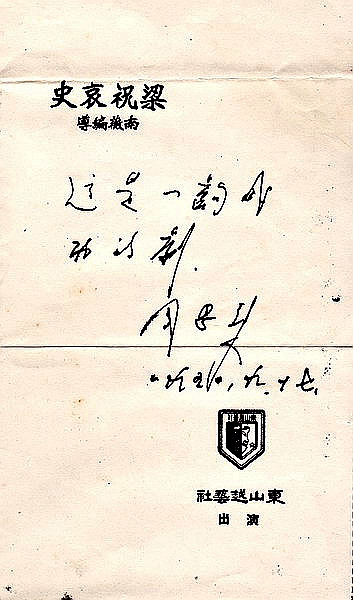 梁祝哀史
南薇編導
这是一齣成
功的劇.
周恩来
一九五〇,九,十七.
東山越藝社
演出